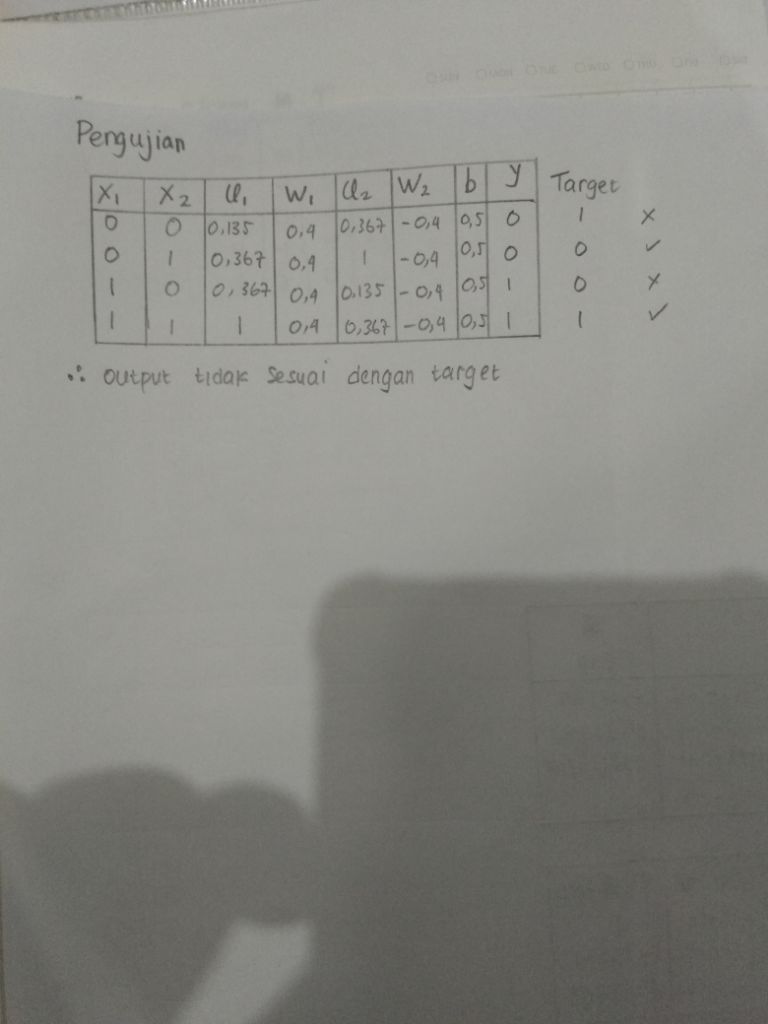 Pengujian
X₁ X₂ φ₁ W₁ φ₂ W₂ b y Target
0 0 0,135 0,4 0,367 -0,4 0,5 0 1 ×
0 1 0,367 0,4 1 -0,4 0,5 0 0 ✓
1 0 0,367 0,4 0.135 -0,4 0,5 1 0 ×
1 1 1 0,4 0,367 -0,4 0,5 1 1 ✓
∴ output tidak sesuai dengan target